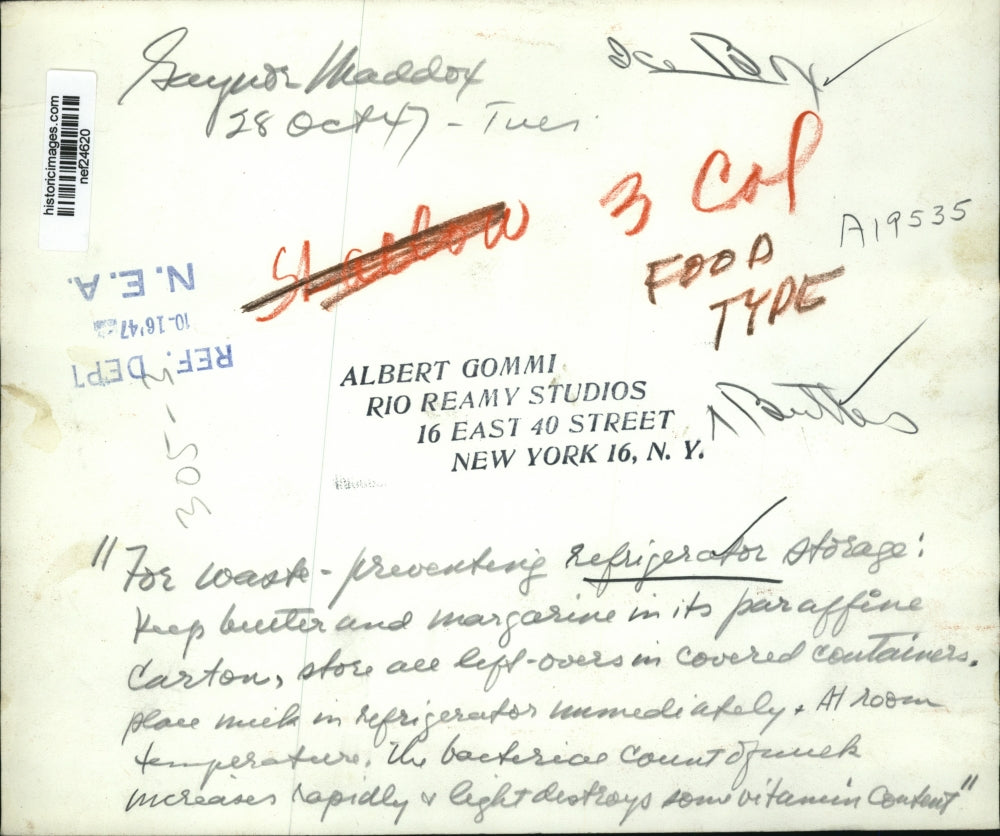 Gaynor Maddox
28 Oct 47 - Tues
Ice Box
historicimages.com
nef24620
3 Col
Shadow
FOOD
TYPE
A19535
N.E.A.
10-16'47
REF. DEPT
305-
ALBERT GOMMI
RIO REAMY STUDIOS
16 EAST 40 STREET
NEW YORK 16, N. Y.
Butter
"For waste-preventing refrigerator storage:
Keep butter and margarine in its paraffine
Carton, store all left-overs in covered containers.
place milk in refrigerator immediately. At room
temperature, the bacterial count of milk
increases rapidly & light destroys some vitamin content"